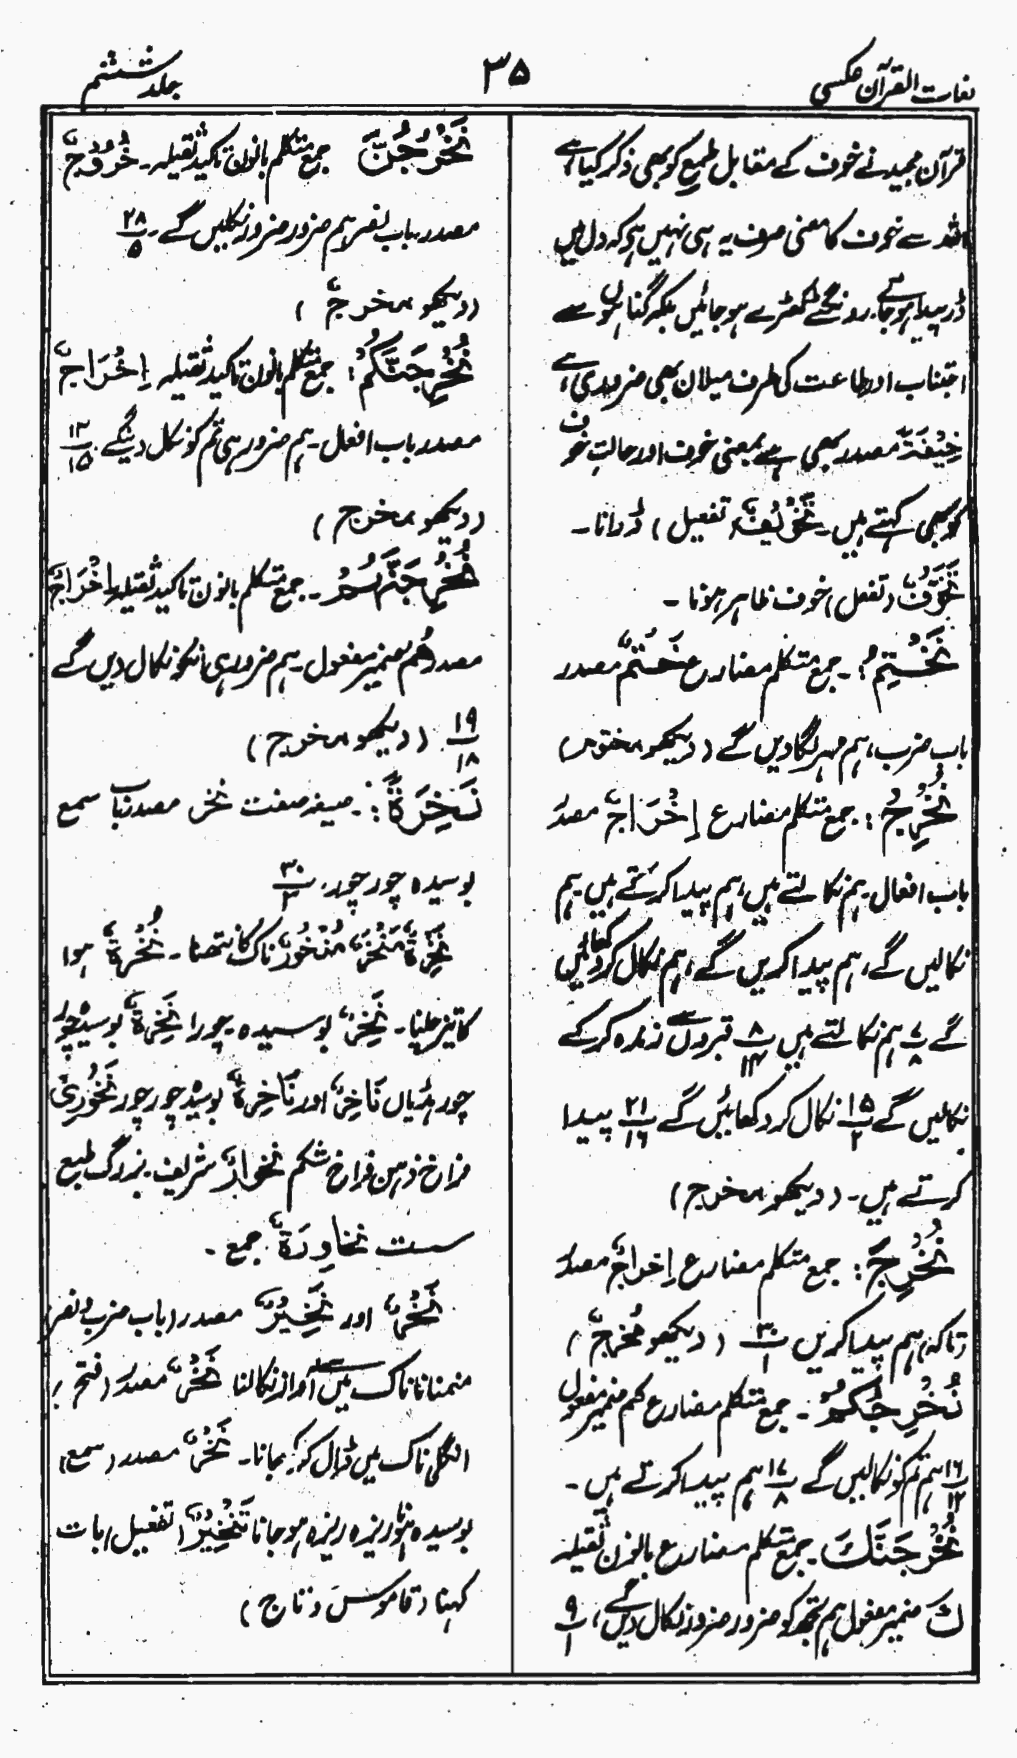 لغات القرآن عکسی
۳۵
جلد ششم
قرآن مجید نے خوف کے مقابل طمع کو بھی ذکر کیا ہے
اللہ سے خوف کا معنی صرف یہ ہی نہیں ہے کہ دل میں
ڈر پیدا ہو جائے۔ رونگٹے کھڑے ہو جائیں بلکہ گناہوں سے
اجتناب اور طاعت کی طرف میلان بھی ضروری ہے
خِیْفَۃٌ مصدر بھی ہے بمعنی خوف اور حالتِ خوف
کو بھی کہتے ہیں۔ تَخْوِیْفٌ (تفعیل) ڈرانا۔
تَخَوُّفٌ (تفعل) خوف ظاہر ہونا۔
نَخْتِمُ: جمع متکلم مضارع خَتْمٌ مصدر
باب ضرب، ہم مہر لگا دیں گے (دیکھو مختوم)
نُخْرِجُ: جمع متکلم مضارع اِخْرَاجٌ مصدر
باب افعال۔ ہم نکالتے ہیں، ہم پیدا کرتے ہیں ہم
نکالیں گے، ہم پیدا کریں گے، ہم نکال کر دکھائیں
گے ۷/۸ ہم نکالتے ہیں ۸/۱۴ قبروں سے زندہ کر کے
نکالیں گے ۱۵/۲ نکال کر دکھائیں گے ۲۱/۱۶ پیدا
کرتے ہیں۔ (دیکھو مخرج)
نُخْرِجَ: جمع متکلم مضارع اِخْرَاجٌ مصدر
تاکہ ہم پیدا کریں ۳۰/۱ (دیکھو مُخْرِجٌ)
نُخْرِجُکُمْ۔ جمع متکلم مضارع کم ضمیر مفعول
۱۶/۱۲ ہم تم کو نکالیں گے ۱۷/۸ ہم پیدا کرتے ہیں۔
نُخْرِجَنَّکَ۔ جمع متکلم مضارع بالنون ثقیلہ
کَ ضمیر مفعول ہم تجھ کو ضرور ضرور نکال دیں گے، ۹/۱
نَخْرُجَنَّ جمع متکلم بانون تاکید ثقیلہ۔ خُرُوْجٌ
مصدر باب نصر ہم ضرور ضرور نکلیں گے۔ ۲۸/۵
(دیکھو مخرج)
نُخْرِجَنَّکُمْ: جمع متکلم بانون تاکید ثقیلہ اِخْرَاجٌ
مصدر باب افعل۔ ہم ضرور ہی تم کو نکال دینگے ۱۳/۱۵
(دیکھو مخرج)
نُخْرِجَنَّهُمْ۔ جمع متکلم بانون تاکید ثقیلہ اِخْرَاجٌ
مصدر هُمْ ضمیر مفعول۔ ہم ضرور ہی انکو نکال دیں گے
۱۹/۱۸ (دیکھو مخرج)
نَخِرَةً:۔ صیغہ صفت نخر مصدر باب سمع
بوسیدہ چور چور، ۳۰/۳
نُخْرَۃٌ مَنْخَرٌ، مُنْخُوْرٌ ناک کا نتھنا۔ نُخْرَۃٌ ہوا
کا تیز چلنا۔ نَخِرٌ، بوسیدہ چورا نَخِرَۃٌ بوسیدہ چور
چور ہڈیاں نَاخِرٌ، اور نَاخِرَۃٌ بوسیدہ چور چور نَخْوَرِیٌّ
فراخ دہن فراخ شکم نخوارٌ شریف بزرگ طبع
سست نخاوِرَۃٌ جمع۔
نَخْرٌ، اور نَخِیْرٌ مصدر (باب ضرب و نصر)
منمنانا ناک میں سے آواز نکالنا نَخْرٌ مصدر (فتح)
انگلی ناک میں ڈال کر کھجانا۔ نَخَرٌ مصدر (سمع)
بوسیدہ ہونا ریزہ ریزہ ہو جانا تَنْخِیْرٌ (تفعیل) بات
کہنا (قاموس و تاج)